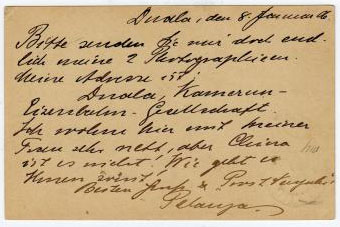 Duala, den 8. Januar
Bitte senden Sie mir doch end-
lich meine 2 Photographieen.
Meine Adresse ist:
Duala, Kamerun-
Eisenbahn-Gesellschaft.
Ich wohne hier mit meiner
Frau sehr nett, aber China
ist es nicht! Wie geht es
Ihnen sonst?
Besten Gruß & Prost Neujahr!